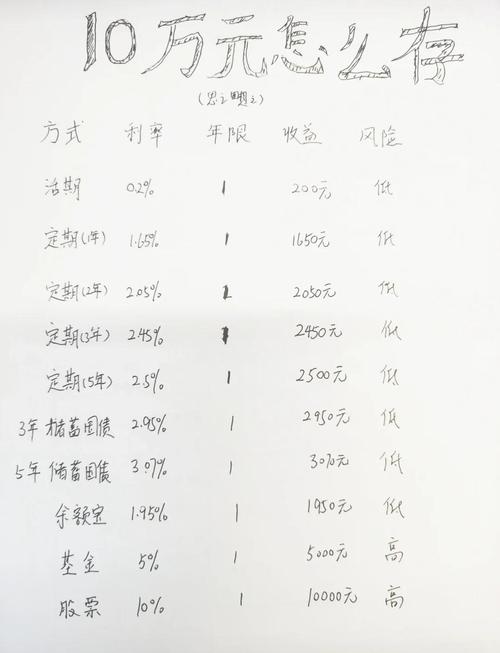 10万元怎么存
方式 利率 年限 收益 风险
活期 0.2% 1 200元 低
定期(1年) 1.65% 1 1650元 低
定期(2年) 2.05% 1 2050元 低
定期(3年) 2.45% 1 2450元 低
定期(5年) 2.5% 1 2500元 低
3年储蓄国债 2.95% 1 2950元 低
5年储蓄国债 3.07% 1 3070元 低
余额宝 1.95% 1 1950元 低
基金 5% 1 5000元 高
股票 10% 1 10000元 高